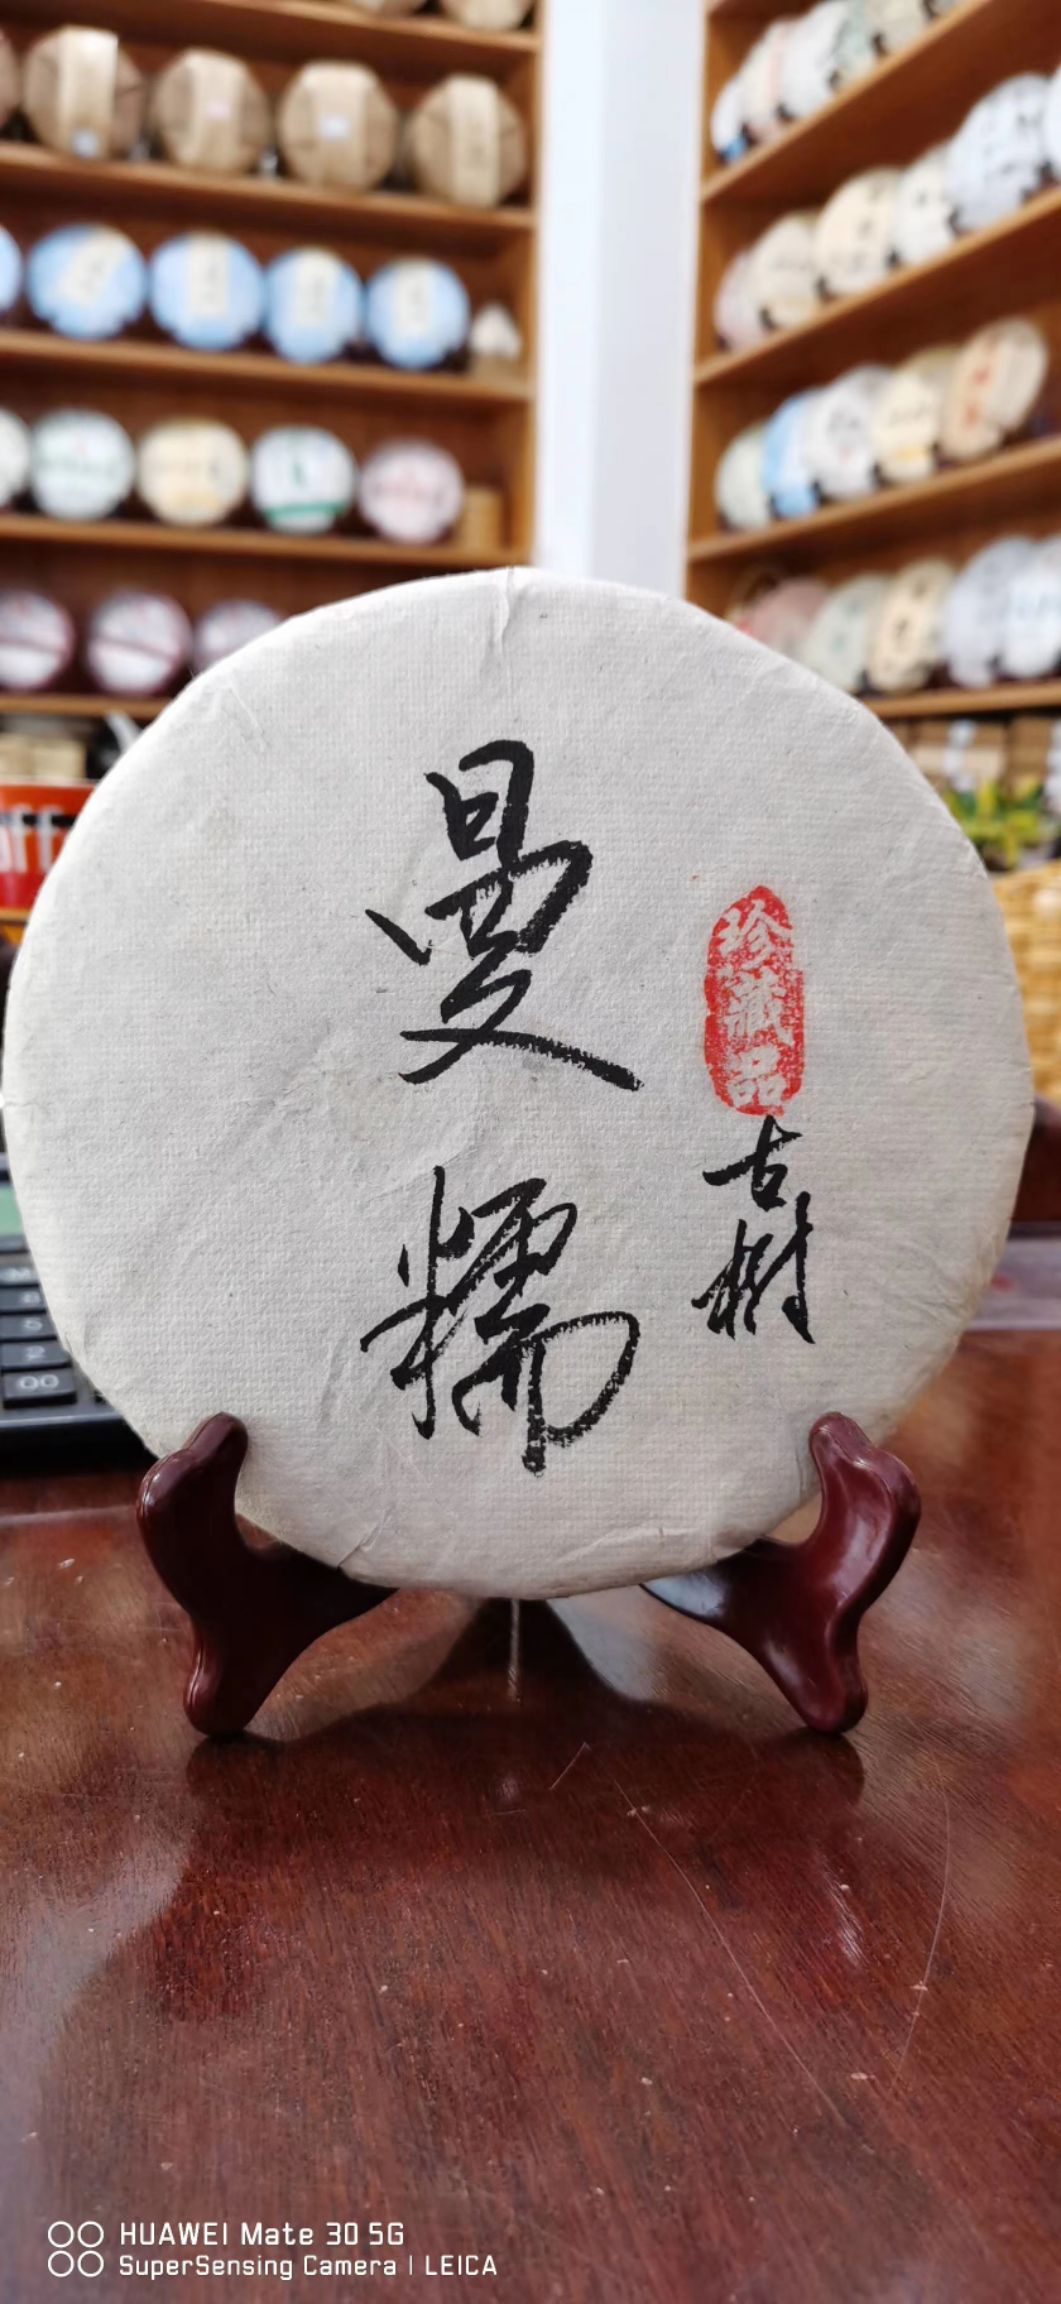 曼糯
珍藏品
古树
HUAWEI Mate 30 5G
SuperSensing Camera | LEICA
5
2
00